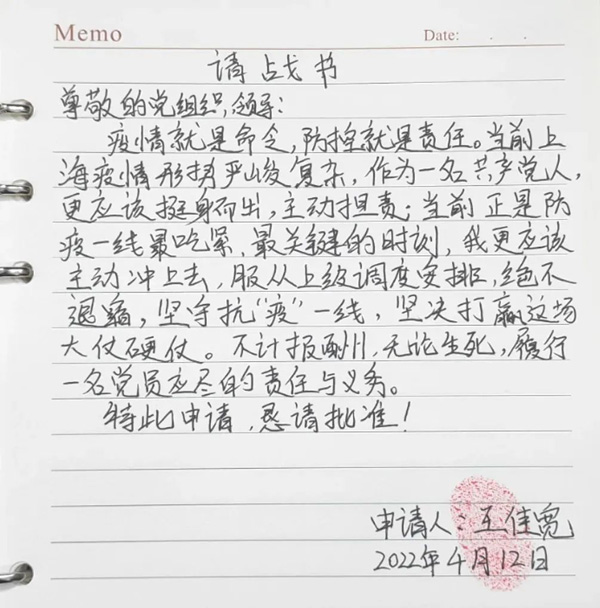 Memo Date: . .
请战书
尊敬的党组织,领导:
疫情就是命令,防控就是责任。当前上
海疫情形势严峻复杂,作为一名共产党人,
更应该挺身而出,主动担责;当前正是防
疫一线最吃紧,最关键的时刻,我更应该
主动冲上去,服从上级调度安排,绝不
退缩,坚守抗“疫”一线,坚决打赢这场
大仗硬仗。不计报酬,无论生死,履行
一名党员应尽的责任与义务。
特此申请,恳请批准!
申请人:王佳宽
2022年4月12日